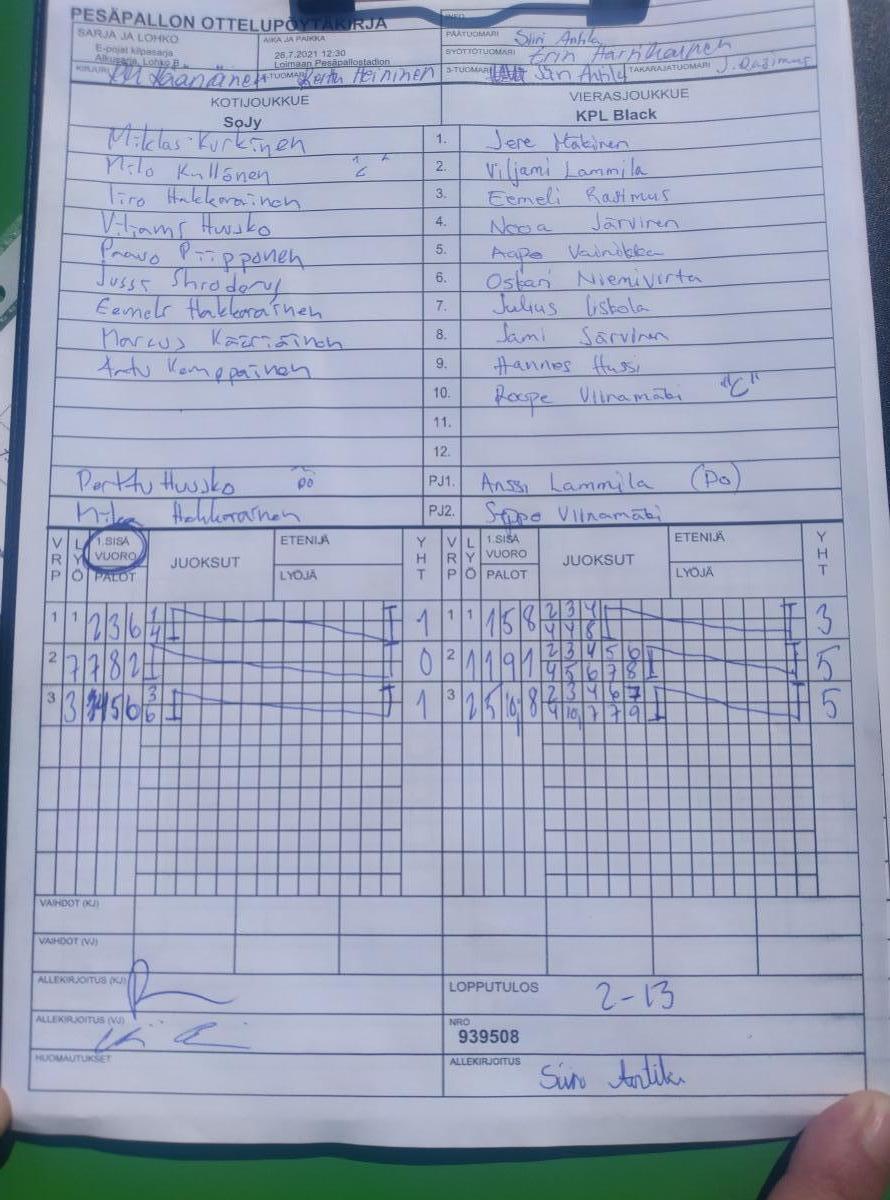 PESÄPALLON OTTELUPÖYTÄKIRJA
INFO
SARJA JA LOHKO
E-pojat kilpasarja
Alkusarja, Lohko B
AIKA JA PAIKKA
26.7.2021 12:30
Loimaan Pesäpallostadion
PÄÄTUOMARI Siiri Anttila
SYÖTTÖTUOMARI
KIRJURI
2-TUOMARI Heininen
3-TUOMARI
TAKARAJATUOMARI J. Rasimus
KOTIJOUKKUE
SoJy
VIERASJOUKKUE
KPL Black
Miklas Kurkinen 1. Jere Mäkinen
Milo Kullönen "C" 2. Viljami Lammila
Iiro Hakkarainen 3. Eemeli Rasimus
Viliami Huusko 4. Nooa Järvinen
Paavo Piipponen 5. Aapo Vainikka
Jussi 6. Oskari Niemivirta
Eemeli Hakkarainen 7. Julius
Marcus Kääriäinen 8. Sami Järvinen
Antu Komppainen 9. Hannes Hussi
10. Roope Viinamäki "C"
11.
12.
Perttu Huusko PJ1. Anssi Lammila (Po)
Mika Hakkarainen PJ2. Seppo Viinamäki
VRP LYÖ 1.SISÄ VUORO PALOT JUOKSUT ETENIJÄ LYÖJÄ YHT VRP LYÖ 1.SISÄ VUORO PALOT JUOKSUT ETENIJÄ LYÖJÄ YHT
1 1 2 3 6 1 1 1 1 1 5 8 2 3 4 3
4 4 4 8
2 7 7 8 2 0 2 1 1 9 1 2 3 4 5 6 5
4 5 6 7 8
3 3 4 5 6 3 1 3 2 5 10 8 2 3 4 6 7 5
6 4 10 7 7 9
VAIHDOT (KJ)
VAIHDOT (VJ)
ALLEKIRJOITUS (KJ)
LOPPUTULOS 2-13
ALLEKIRJOITUS (VJ)
NRO
939508
HUOMAUTUKSET
ALLEKIRJOITUS Siiri Anttila